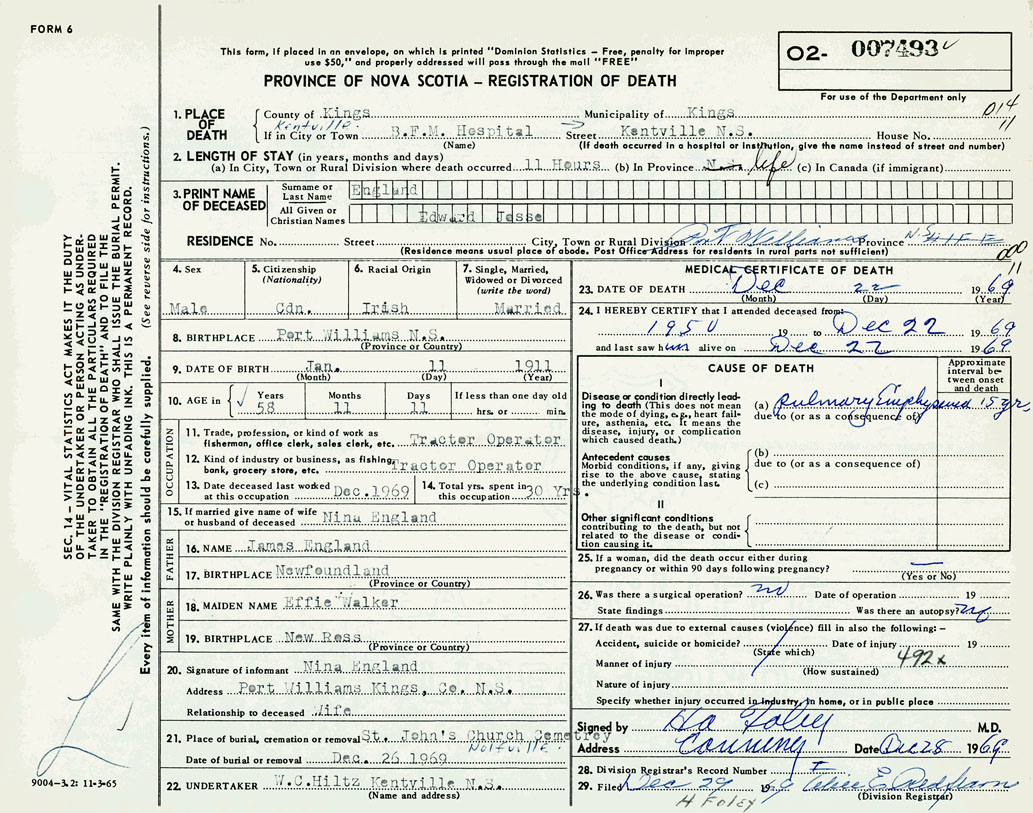 FORM 6
O2- 007493
This form, if placed in an envelope, on which is printed "Dominion Statistics – Free, penalty for improper
use $50," and properly addressed will pass through the mail "FREE"
PROVINCE OF NOVA SCOTIA – REGISTRATION OF DEATH
For use of the Department only
014
11
1. PLACE OF DEATH { County of Kings Municipality of Kings
Kentville
If in City or Town B.F.M. Hospital Street Kentville N.S. House No.
(Name) (If death occurred in a hospital or institution, give the name instead of street and number)
2. LENGTH OF STAY (in years, months and days)
(a) In City, Town or Rural Division where death occurred 11 Hours (b) In Province life (c) In Canada (if immigrant)
3. PRINT NAME OF DECEASED
Surname or Last Name England
All Given or Christian Names Edward Jesse
RESIDENCE No. Street City, Town or Rural Division Port Williams Province N.S.
(Residence means usual place of abode. Post Office Address for residents in rural parts not sufficient)
000
11
4. Sex Male
5. Citizenship (Nationality) Cdn.
6. Racial Origin Irish
7. Single, Married, Widowed or Divorced (write the word) Married
8. BIRTHPLACE Port Williams N.S.
(Province or Country)
9. DATE OF BIRTH Jan. 11 1911
(Month) (Day) (Year)
10. AGE in { Years 58 Months 11 Days 11 If less than one day old hrs. or min.
OCCUPATION
11. Trade, profession, or kind of work as fisherman, office clerk, sales clerk, etc. Tractor Operator
12. Kind of industry or business, as fishing, bank, grocery store, etc. Tractor Operator
13. Date deceased last worked at this occupation Dec.1969
14. Total yrs. spent in this occupation 30 Yrs.
15. If married give name of wife or husband of deceased Nina England
FATHER
16. NAME James England
17. BIRTHPLACE Newfoundland
(Province or Country)
MOTHER
18. MAIDEN NAME Effie Walker
19. BIRTHPLACE New Ross
(Province or Country)
20. Signature of informant Nina England
Address Port Williams Kings, Co. N.S.
Relationship to deceased Wife
21. Place of burial, cremation or removal St. John's Church Cemetrey
Wolfville
Date of burial or removal Dec. 26 1969
22. UNDERTAKER W.C.Hiltz Kentville N.S.
(Name and address)
MEDICAL CERTIFICATE OF DEATH
23. DATE OF DEATH Dec 22 1969
(Month) (Day) (Year)
24. I HEREBY CERTIFY that I attended deceased from:
1950 19 to Dec 22 1969
and last saw him alive on Dec 22 1969
CAUSE OF DEATH
Approximate interval between onset and death
I
Disease or condition directly leading to death (This does not mean the mode of dying, e.g., heart failure, asthenia, etc. It means the disease, injury, or complication which caused death.)
(a) Pulmonary Emphysema 15 yr.
due to (or as a consequence of)
Antecedent causes
Morbid conditions, if any, giving rise to the above cause, stating the underlying condition last.
(b)
due to (or as a consequence of)
(c)
II
Other significant conditions
contributing to the death, but not related to the disease or condition causing it.
25. If a woman, did the death occur either during
pregnancy or within 90 days following pregnancy? —
(Yes or No)
26. Was there a surgical operation? no Date of operation 19
State findings Was there an autopsy? no
27. If death was due to external causes (violence) fill in also the following: –
Accident, suicide or homicide? Date of injury 19
(State which) 492x
Manner of injury
(How sustained)
Nature of injury
Specify whether injury occurred in industry, in home, or in public place
Signed by H A Foley M.D.
Address Canning Date Dec 28 1969
28. Division Registrar's Record Number
29. Filed Dec 29 1969
(Division Registrar)
H FOLEY
SEC. 14 – VITAL STATISTICS ACT MAKES IT THE DUTY
OF THE UNDERTAKER OR PERSON ACTING AS UNDER-
TAKER TO OBTAIN ALL THE PARTICULARS REQUIRED
IN THE "REGISTRATION OF DEATH" AND TO FILE THE
SAME WITH THE DIVISION REGISTRAR WHO SHALL ISSUE THE BURIAL PERMIT.
WRITE PLAINLY WITH UNFADING INK. THIS IS A PERMANENT RECORD.
Every item of information should be carefully supplied. (See reverse side for instructions.)
9004–3.2: 11-3-65